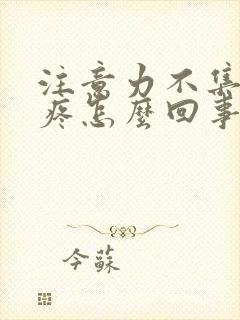 注意力不集
疼怎麼回事
今蘇